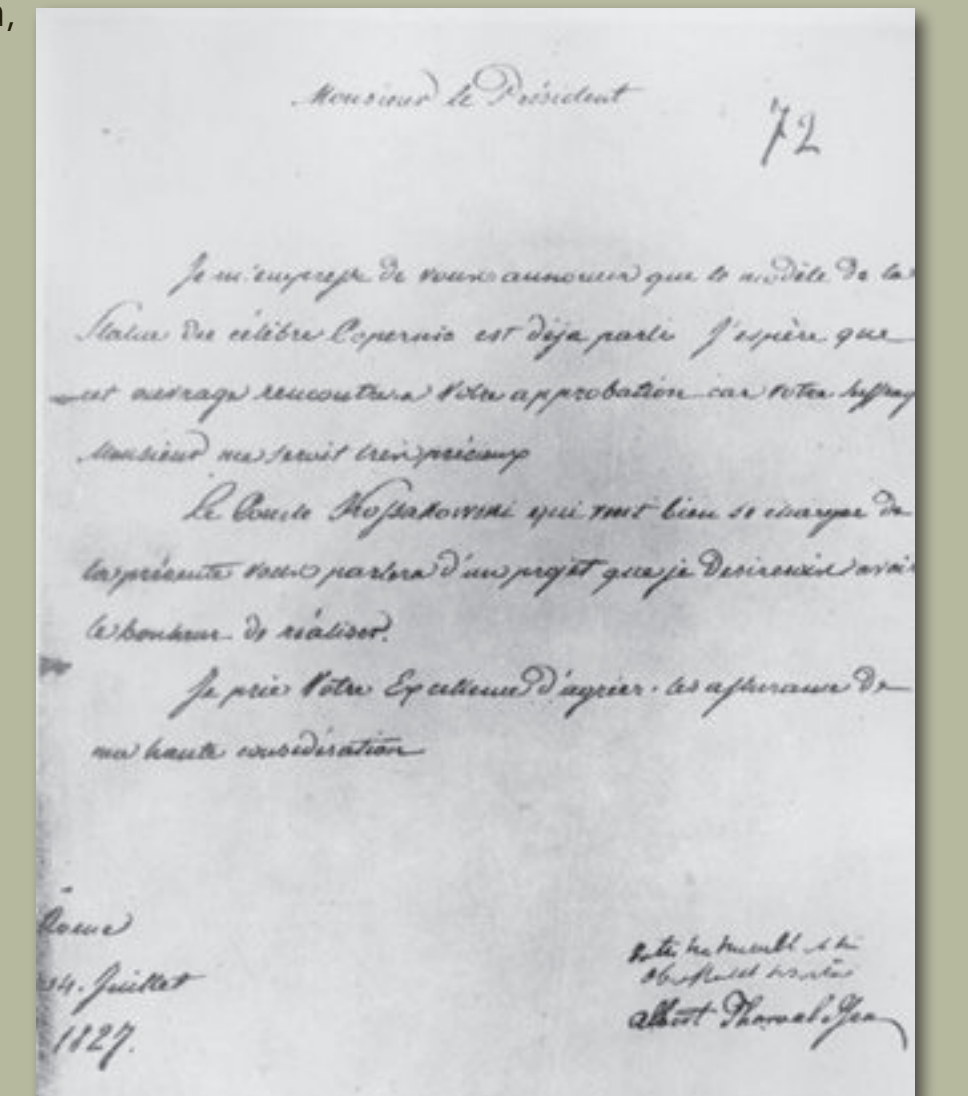 n,
Monsieur le Président
72
Je m'empresse de vous annoncer que le modèle de la
Statue du célèbre Copernic est déja parti J'espère que
cet ouvrage rencontrera Votre approbation car votre suffrag
Monsieur me seroit tres précieux
Le Comte Kossakowski qui veut bien se charger de
la présente vous parlera d'un projet que je desirerois avoir
le bonheur de réaliser.
Je prie Votre Excellence d'agréer les assurance de
ma haute considération
Rome
24. Juillet
1827.
votre
albert Thorvaldsen